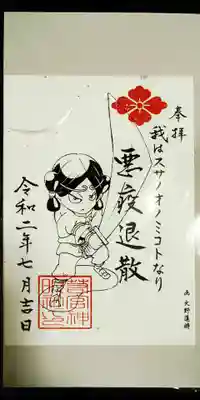 奉拝
我はスサノオノミコトなり
悪疫退散
令和二年七月吉日